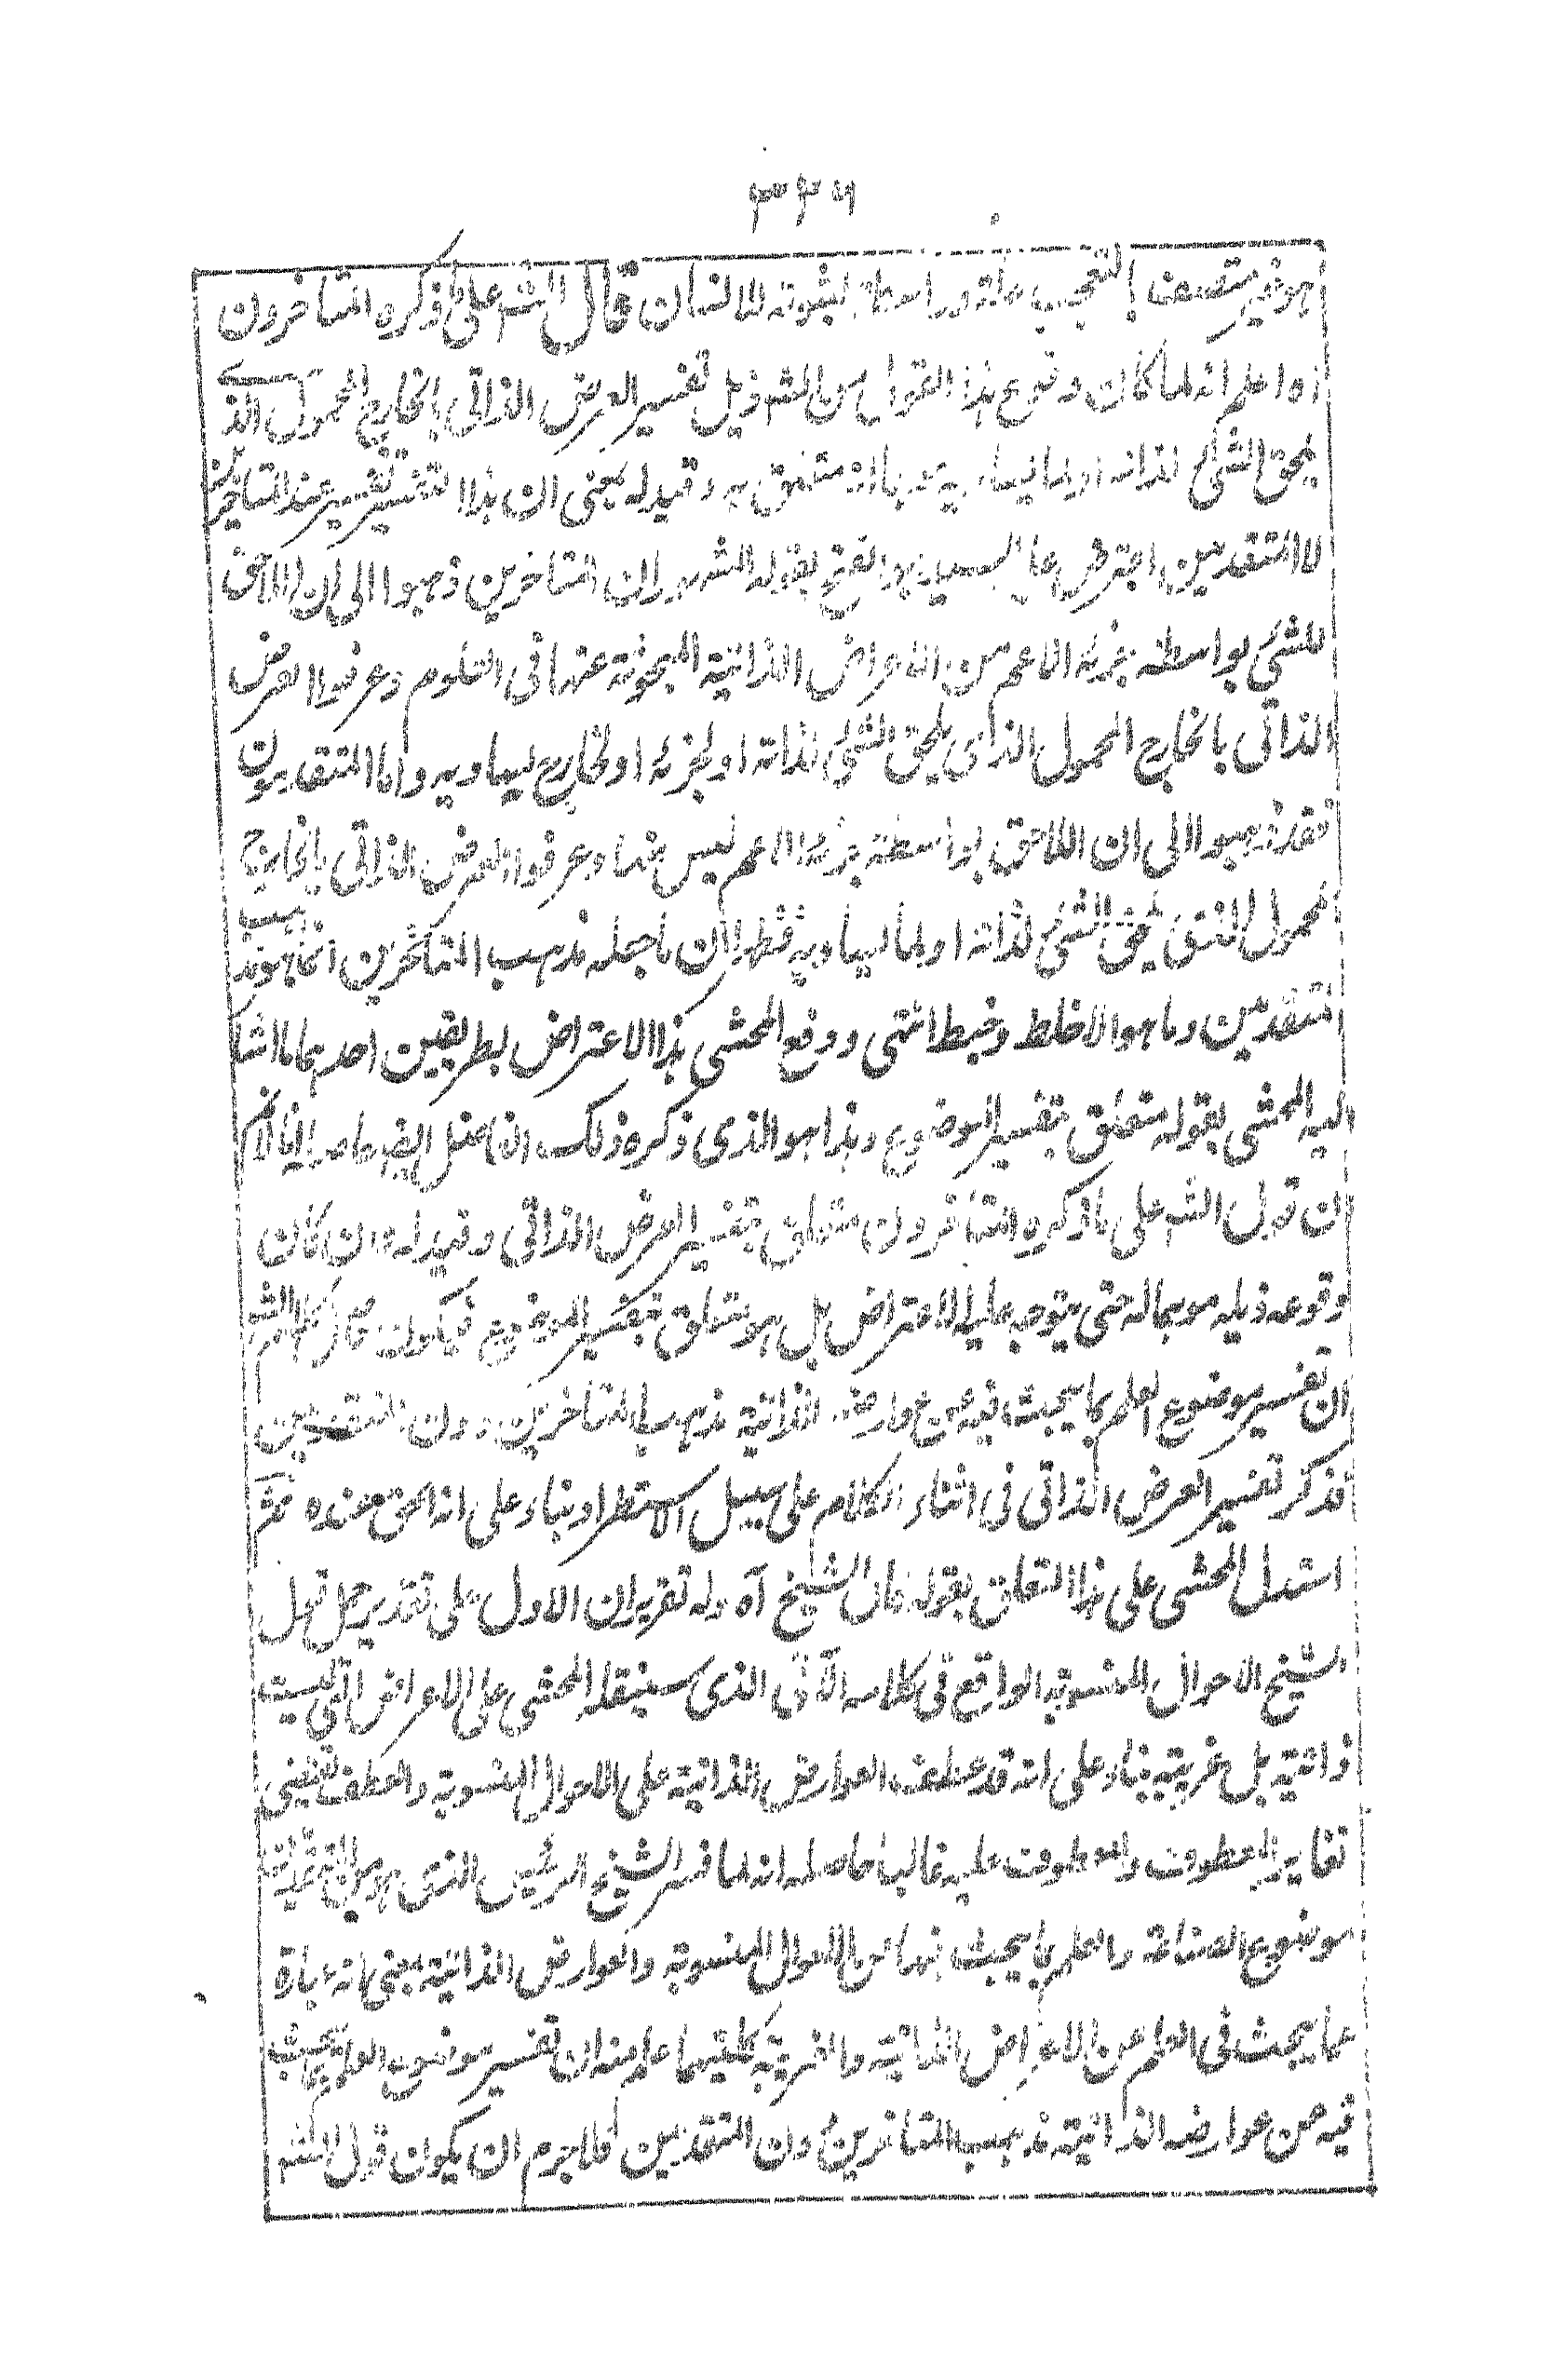 ۳۴۶
هو فيه متصف بالتعجب فانه واسطة لثبوته للانسان قال الشه على ما ذكره المتأخرون
آه اعلم انه لما كان وقوع هذا القول من الشه ذيل تفسير العرض الذاتي بالخارج المحمول الذي
يلحق الشئ لذاته او لما يساويه متعلق به وقيد له بمعنى ان هذا التفسير تفسير عند المتاخرين
لا المتقدمين اعترض بقوله المشهور ان المتاخرين ذهبوا الى ان اللاحق
للشئ بواسطة جزئه الاعم من الاعراض الذاتية المبحوثة عنها في العلوم وعرفوا العرض
الذاتي بالخارج المحمول الذي يلحق الشئ لذاته او لجزئه او لخارج يساويه واما المتقدمون
فقد ذهبوا الى ان اللاحق بواسطة جزئه الاعم ليس منها وعرفوا العرض الذاتي بالخارج
المحمول الذي يلحق الشئ لذاته او لما يساويه فظهر ان ما جعله مذهب المتأخرين انما هو مذهب
المتقدمين وما هو الا خلط وخبط انتهى ودفع المحشى هذا الاعتراض بطريقين احدهما ما اشار
اليه المحشى بقوله متعلق بتفسير الموضوع وهذا هو الذى ذكره ذلك الفاضل ايضا حاصله انا لانم
ان قول الشه على ما ذكره المتأخرون متعلق بتفسير العرض الذاتي وقيد له وان كان
وقوعه ذيله موهما له حتى يتوجه عليه الاعتراض بل هو متعلق بتفسير الموضوع فيكون حاصل كلام الشه
ان تفسير موضوع العلم بما يبحث فيه عن عوارضه الذاتية مذهب المتأخرين دون المتقدمين
فذكر تفسير العرض الذاتي في اثناء الكلام على سبيل الاستطراد بناء على انه الحق عنده ثم
استدل المحشى على هذا التعلق بقوله قال الشيخ آه وله تقريران الاول على تقدير حمل قول
الشيخ الاحوال المنسوبة الواقع في كلامه الآتي الذى سينقله المحشى على الاعراض التي ليست
ذاتية بل غريبة بناء على انه قد عطف العوارض الذاتية على الاحوال المنسوبة والعطف يقتضى
تغاير المعطوف والمعطوف عليه غالبا حاصله انه لما فسر الشيخ الرئيس الذى هو من المتقدمين
موضوع الصناعة والعلم بما يبحث فيها من الاحوال المنسوبة والعوارض الذاتية بمعنى انه عبارة
عما يبحث في العلم عن الاعراض الذاتية والغريبة كلتيهما علم منه ان تفسير موضوع العلم بما يبحث
فيه عن عوارضه الذاتية مذهب المتأخرين دون المتقدمين فلا جرم ان يكون قول الشه